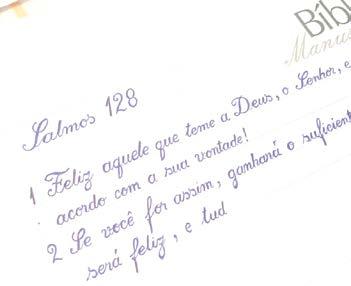 Bíbl
Manus
Salmos 128
1 Feliz aquele que teme a Deus, o Senhor, e
acordo com a sua vontade!
2 Se você for assim, ganhará o suficient
será feliz, e tud